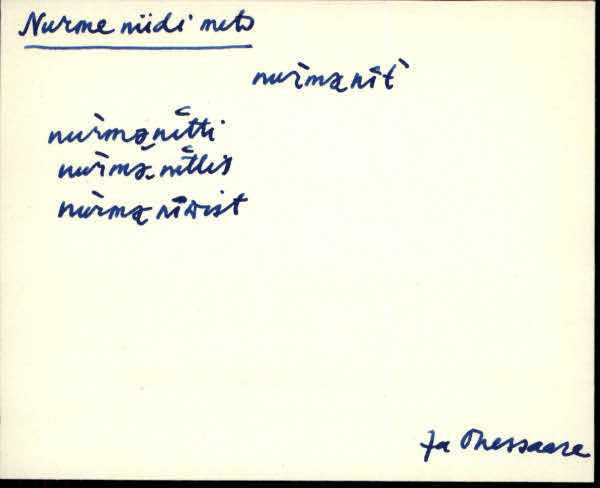 Nurme niidi mets
nurmanit
nurmanitti
nurmanittis
nurmaniwist
Ja Ohessaare